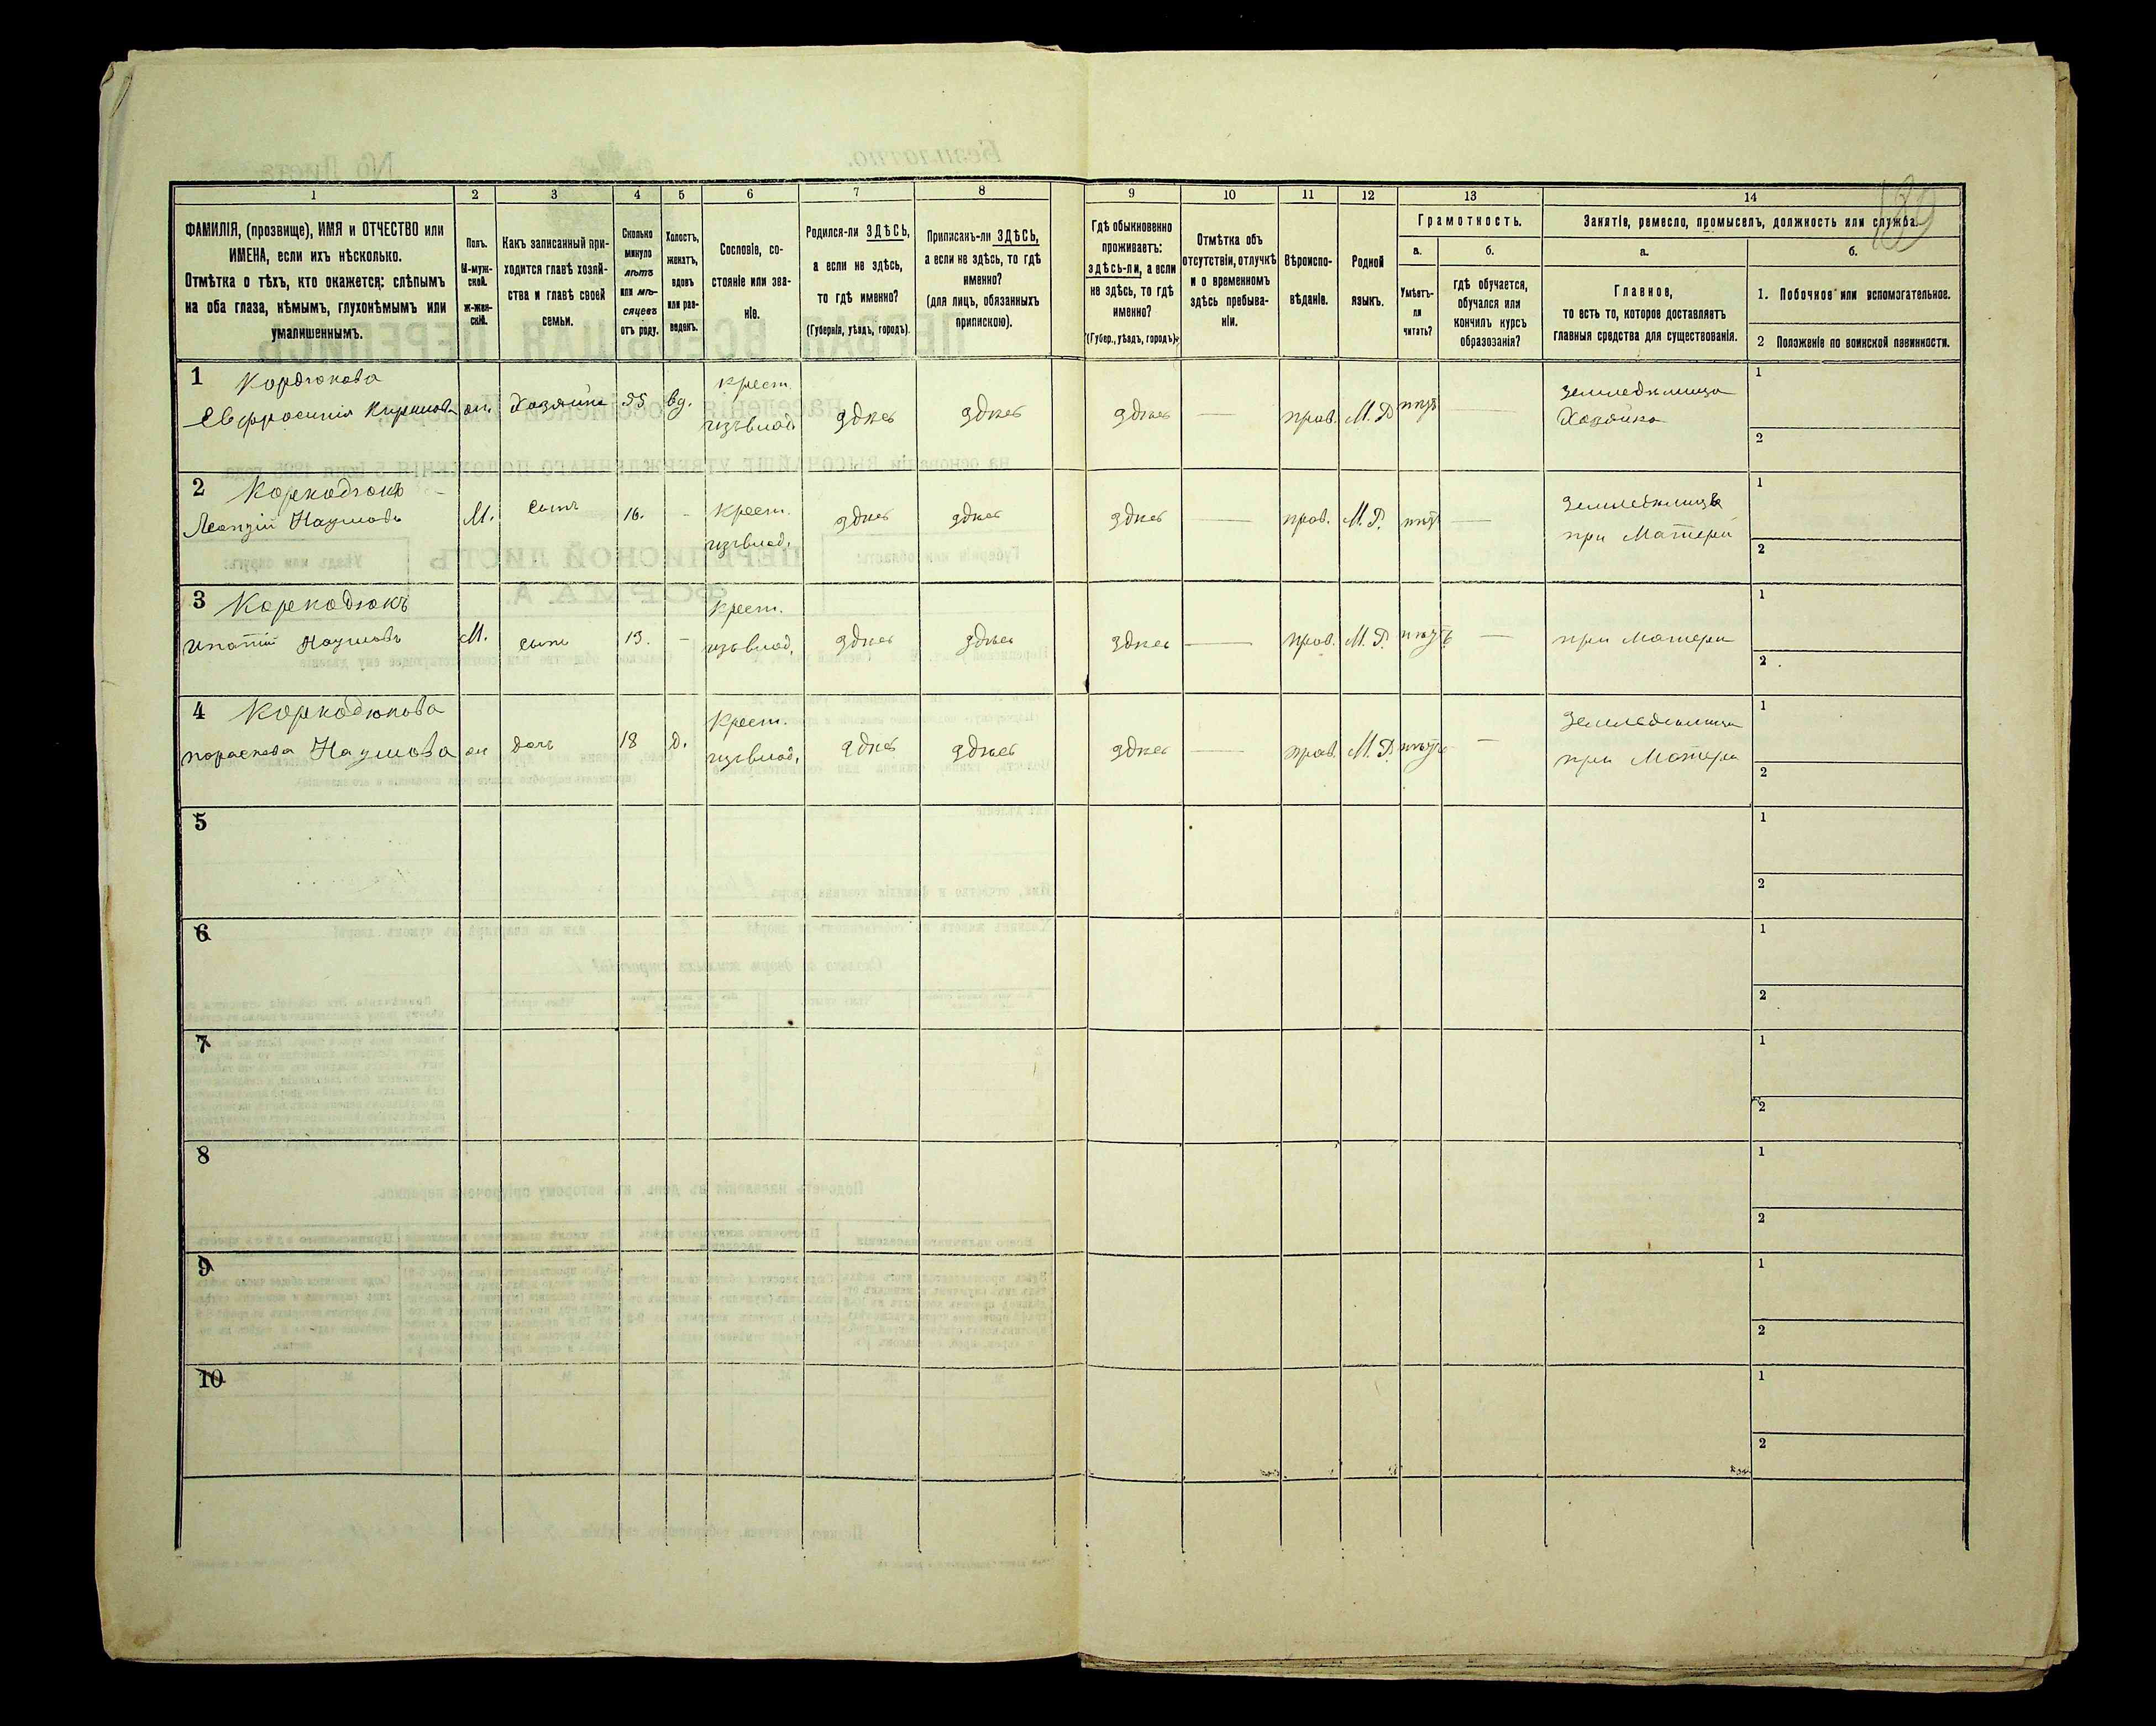 1 2 3 4 5 6 7 8 9 10 11 12 13 14
ФАМИЛІЯ, (прозвище), ИМЯ и ОТЧЕСТВО или
ИМЕНА, если ихъ нѣсколько.
Отмѣтка о тѣхъ, кто окажется: слѣпымъ
на оба глаза, нѣмымъ, глухонѣмымъ или
умалишеннымъ.
Полъ.
М-муж-
ской.
ж-жен-
скій.
Какъ записанный при-
ходится главѣ хозяй-
ства и главѣ своей
семьи.
Сколько
минуло
лѣтъ
или мѣ-
сяцевъ
отъ роду.
Холостъ,
женатъ,
вдовъ
или раз-
веденъ.
Сословіе, со-
стояніе или зва-
ніе.
Родился-ли ЗДѢСЬ,
а если не здѣсь,
то гдѣ именно?
(Губернія, уѣздъ, городъ).
Приписанъ-ли ЗДѢСЬ,
а если не здѣсь, то гдѣ
именно?
(для лицъ, обязанныхъ
припискою).
Гдѣ обыкновенно
проживаетъ:
здѣсь-ли, а если
не здѣсь, то гдѣ
именно?
(Губер., уѣздъ, городъ).
Отмѣтка объ
отсутствіи, отлучкѣ
и о временномъ
здѣсь пребыва-
ніи.
Вѣроиспо-
вѣданіе.
Родной
языкъ.
Грамотность.
а.
Умѣетъ-
ли
читать?
б.
гдѣ обучается,
обучался или
кончилъ курсъ
образованія?
Занятіе, ремесло, промыселъ, должность или служба.
а.
Главное,
то есть то, которое доставляетъ
главныя средства для существованія.
б.
1. Побочное или вспомогательное.
2 Положеніе по воинской повинности.
1
Евфросинія Хозяйка 55 вд. Крест. здѣсь здѣсь здѣсь — прав. М.Р. —
Хозяйка
1
2
2 Коркодюкъ
Наумовъ М. сынъ 16. - Крест. здѣсь здѣсь здѣсь — прав. М.Р. —
при Матери
1
2
3 Коркодюкъ
Ипатій Наумовъ М. сынъ 13. - Крест. здѣсь здѣсь здѣсь — прав. М.Р. — при матери
1
2
4 Коркодюкова
Параскева Наумова дочь 18 д. Крест. здѣсь здѣсь здѣсь — прав. М.Р. —
при Матери
1
2
5
1
2
6
1
2
7
1
2
8
1
2
9
1
2
10
1
2